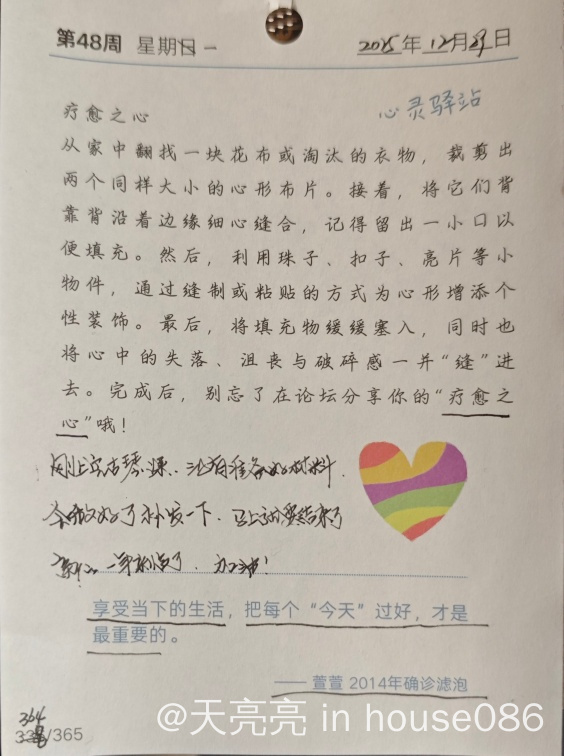 第48周 星期一 2025年12月29日
心灵驿站
疗愈之心
从家中翻找一块花布或淘汰的衣物，裁剪出
两个同样大小的心形布片。接着，将它们背
靠背沿着边缘细心缝合，记得留出一小口以
便填充。然后，利用珠子、扣子、亮片等小
物件，通过缝制或粘贴的方式为心形增添个
性装饰。最后，将填充物缓缓塞入，同时也
将心中的失落、沮丧与破碎感一并“缝”进
去。完成后，别忘了在论坛分享你的“疗愈之
心”哦！
刚上完古琴课．没有准备好材料．
做好了补发一下．马上就要结束了
新的一年来了．加油！
享受当下的生活，把每个“今天”过好，才是
最重要的。
—— 萱萱 2014年确诊滤泡
364
/365
@天亮亮 in house086